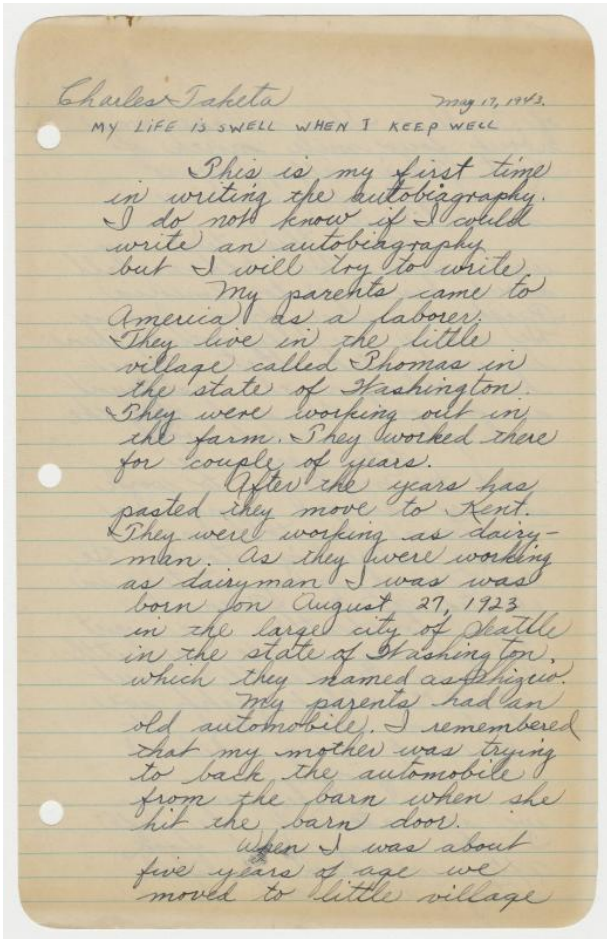 Charles Taketa May 17, 1943.
MY LIFE IS SWELL WHEN I KEEP WELL
This is my first time
in writing the autobiagraphy.
I do not know if I could
write an autobiagraphy
but I will try to write.
My parents came to
America as a laborer.
They live in the little
village called Thomas in
the state of Washington.
They were working out in
the farm. They worked there
for couple of years.
After the years has
pasted they move to Kent.
They were working as dairy-
man. As they were working
as dairyman I was was
born on August 27, 1923
in the large city of Seattle
in the state of Washington,
which they named as Shizuo.
My parents had an
old automobile. I remembered
that my mother was trying
to back the automobile
from the barn when she
hit the barn door.
When I was about
five years of age we
moved to little village